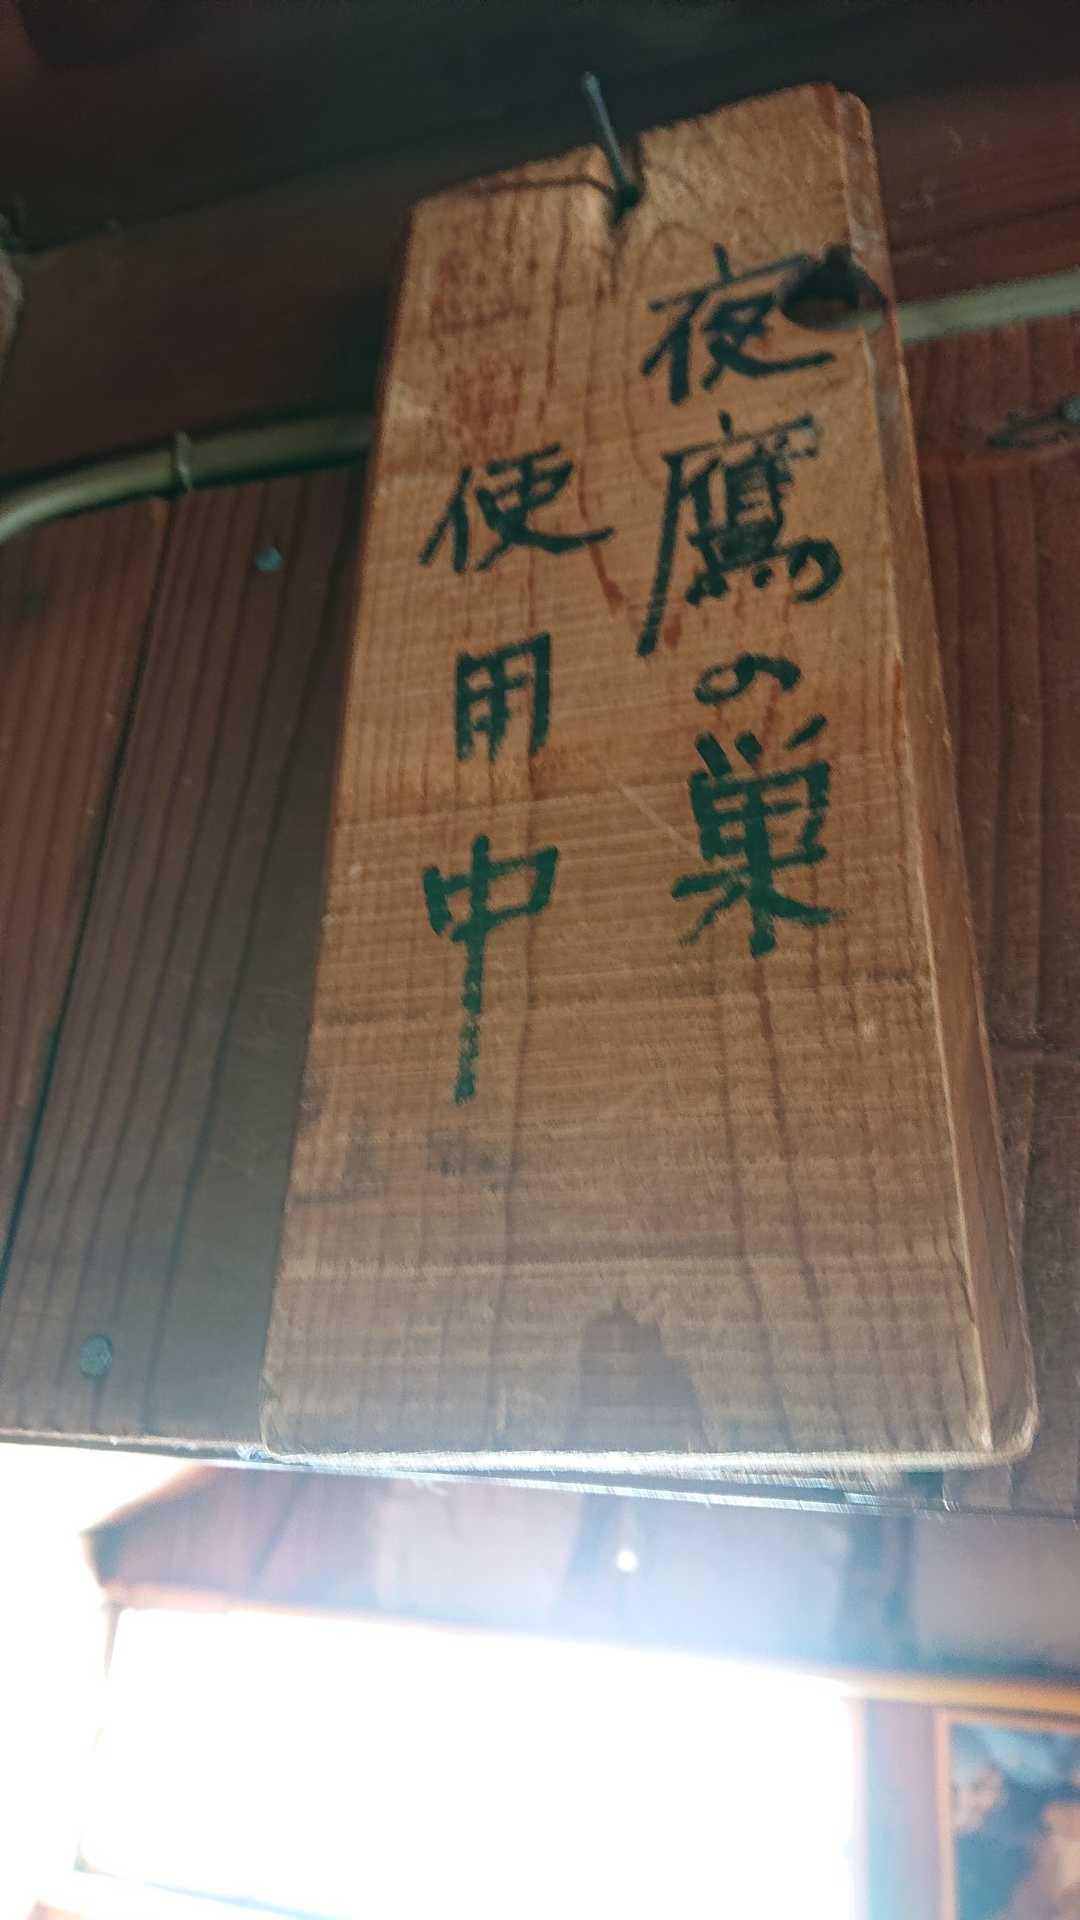 夜鷹の巣
使用中